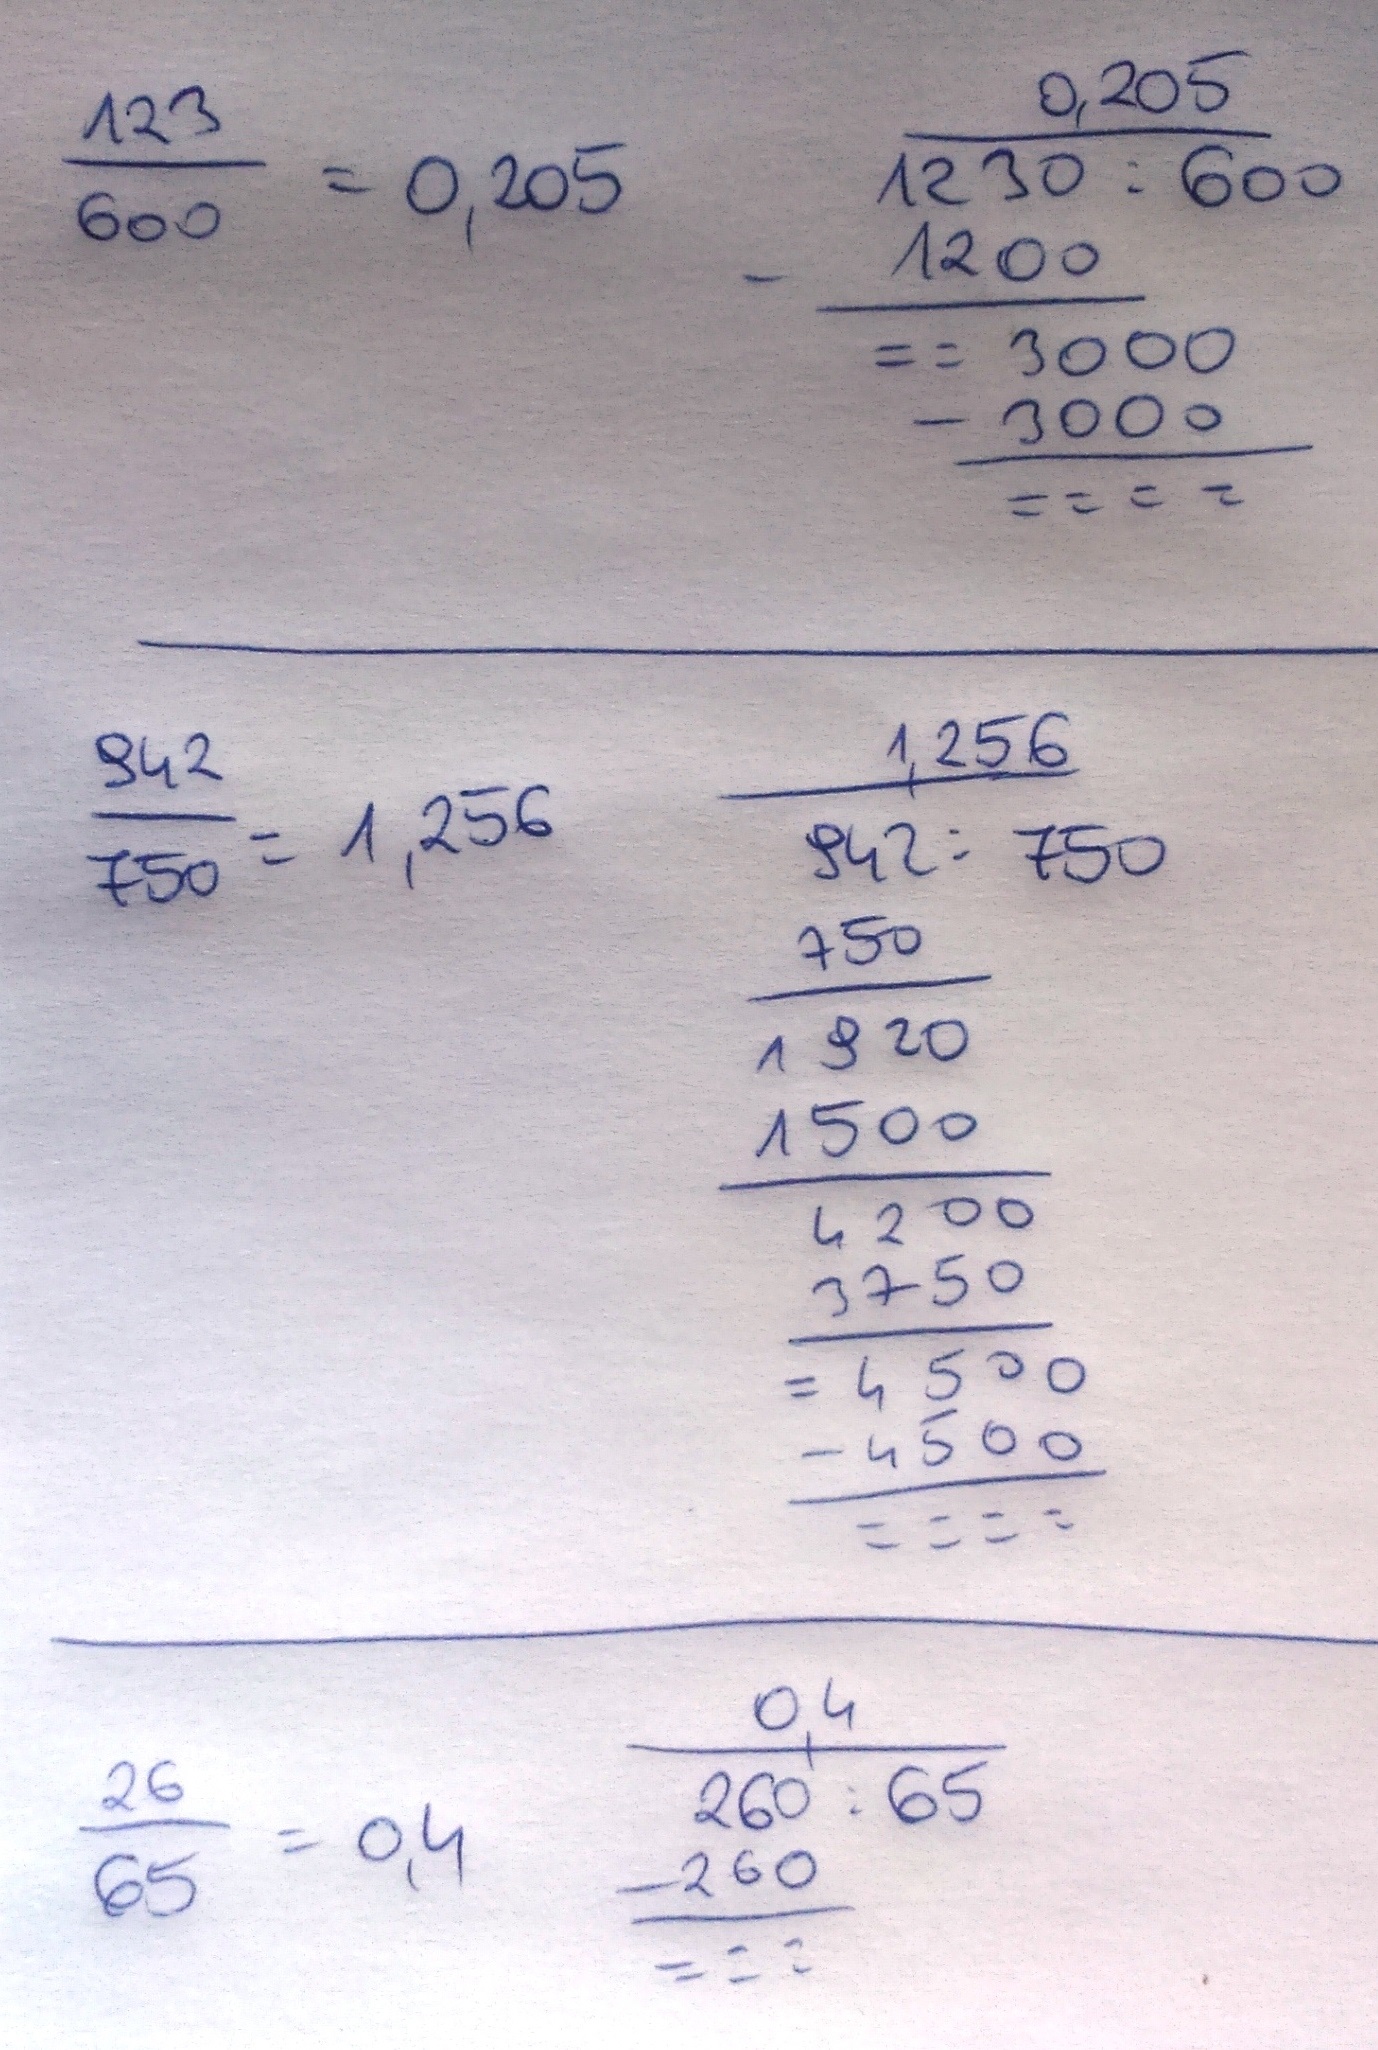 123
600
= 0,205
0,205
1230 : 600
- 1200
= = 3000
- 3000
= = = =
942
750
= 1,256
1,256
942 : 750
750
1920
1500
4200
3750
= 4500
- 4500
= = = =
26
65
= 0,4
0,4
260 : 65
- 260
= = =